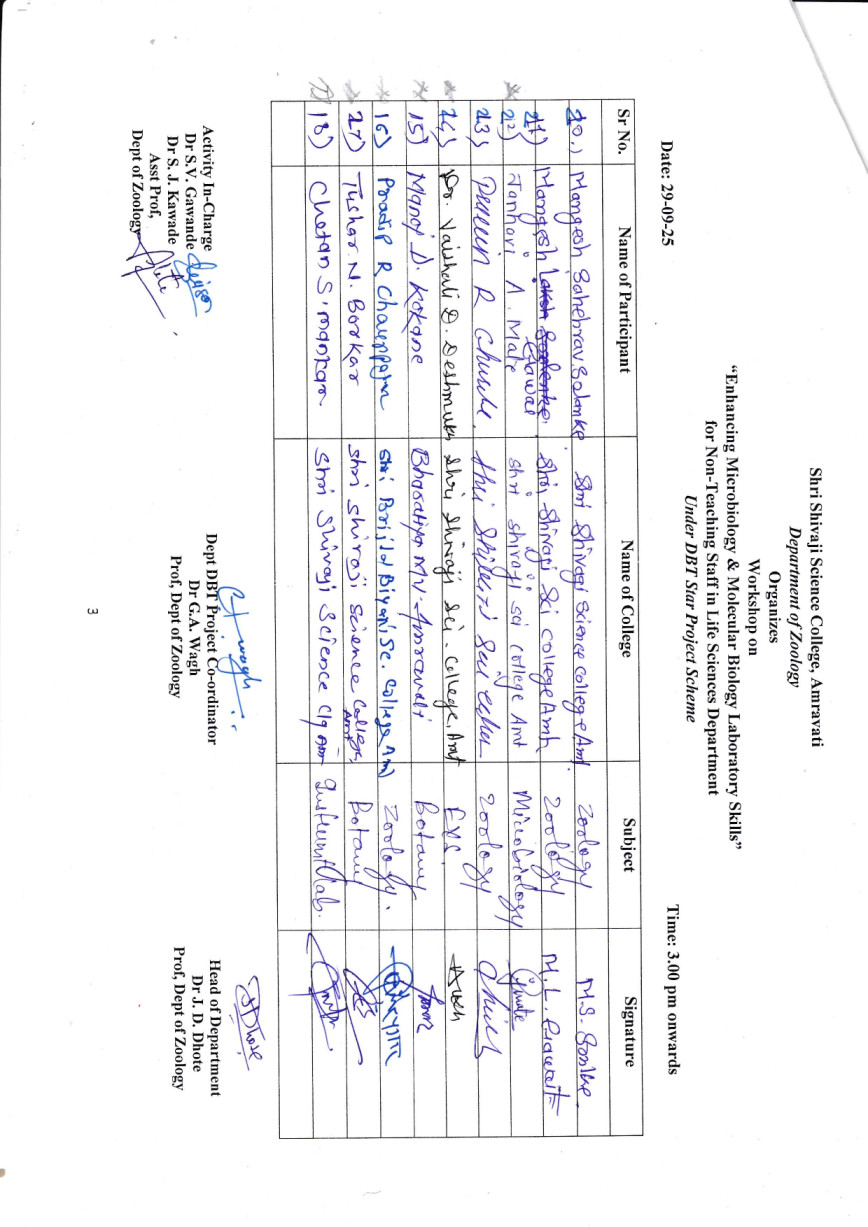 Shri Shivaji Science College, Amravati
Department of Zoology
Organizes
Workshop on
“Enhancing Microbiology & Molecular Biology Laboratory Skills”
for Non-Teaching Staff in Life Sciences Department
Under DBT Star Project Scheme
Date: 29-09-25 Time: 3.00 pm onwards
Sr No. Name of Participant Name of College Subject Signature
20.) Mangesh Sahebrav Solanke Shri Shivaji Science College Amt. Zoology M.S. Solanke
21) Mangesh Gawai Shri Shivaji Sci College Amt. Zoology M. L.
22) Janhavi A. Mate Shri Shivaji Sci College Amt Microbiology
23) R Zoology
24) Dr. Vaishali D. Deshmukh Shri Shivaji Sci. College, Amt EVS.
15) Manoj D. Kokane Bharatiya MV. Amravati Botany
16) Pradip R Shri Brijlal Biyani Sc. College Amt Zoology.
27) Tushar N. Borkar Shri Shivaji Science College, Amt Botany
18) Chetan S. Mankar Shri Shivaji Science Clg Amt Instrument lab.
Activity In-Charge
Dr S.V. Gawande
Dr S. J. Kawade
Asst Prof,
Dept of Zoology
Dept DBT Project Co-ordinator
Dr G.A. Wagh
Prof, Dept of Zoology
JDhote
Head of Department
Dr J. D. Dhote
Prof, Dept of Zoology
3